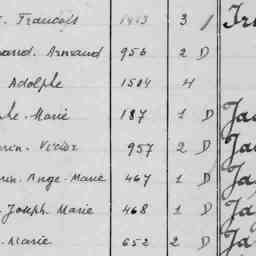 François 1413 3 /
and. Armand 956 2 D
Adolphe 1504 H
he. Marie 187 1 D Ja
rin. Victor 957 2 D Ja
in. Ange. Marie 467 1 D Ja
. Joseph Marie 468 1 D Ja
. Marie 652 2 D Ja